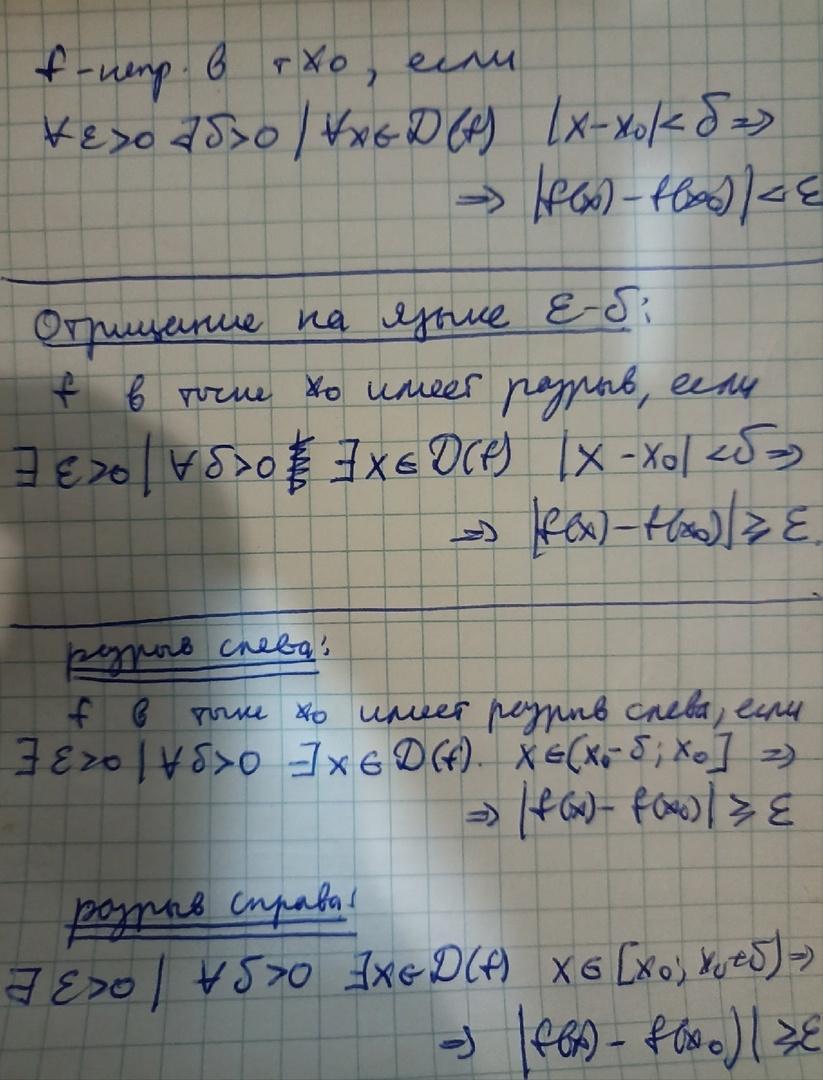 f - непр. в т x₀, если
∀ε>0 ∃δ>0 | ∀x∈D(f) |x-x₀|<δ ⇒
⇒ |f(x) - f(x₀)| < ε
Отрицание на языке ε-δ:
f в точке x₀ имеет разрыв, если
∃ ε>0 | ∀δ>0 ∃x∈D(f) |x - x₀| <δ ⇒
⇒ |f(x) - f(x₀)| ⩾ ε.
разрыв слева:
f в точке x₀ имеет разрыв слева, если
∃ ε>0 | ∀δ>0 ∃x∈D(f). x∈(x₀-δ; x₀] ⇒
⇒ |f(x) - f(x₀)| ⩾ ε
разрыв справа:
∃ ε>0 | ∀δ>0 ∃x∈D(f) x∈[x₀; x₀+δ) ⇒
⇒ |f(x) - f(x₀)| ⩾ε